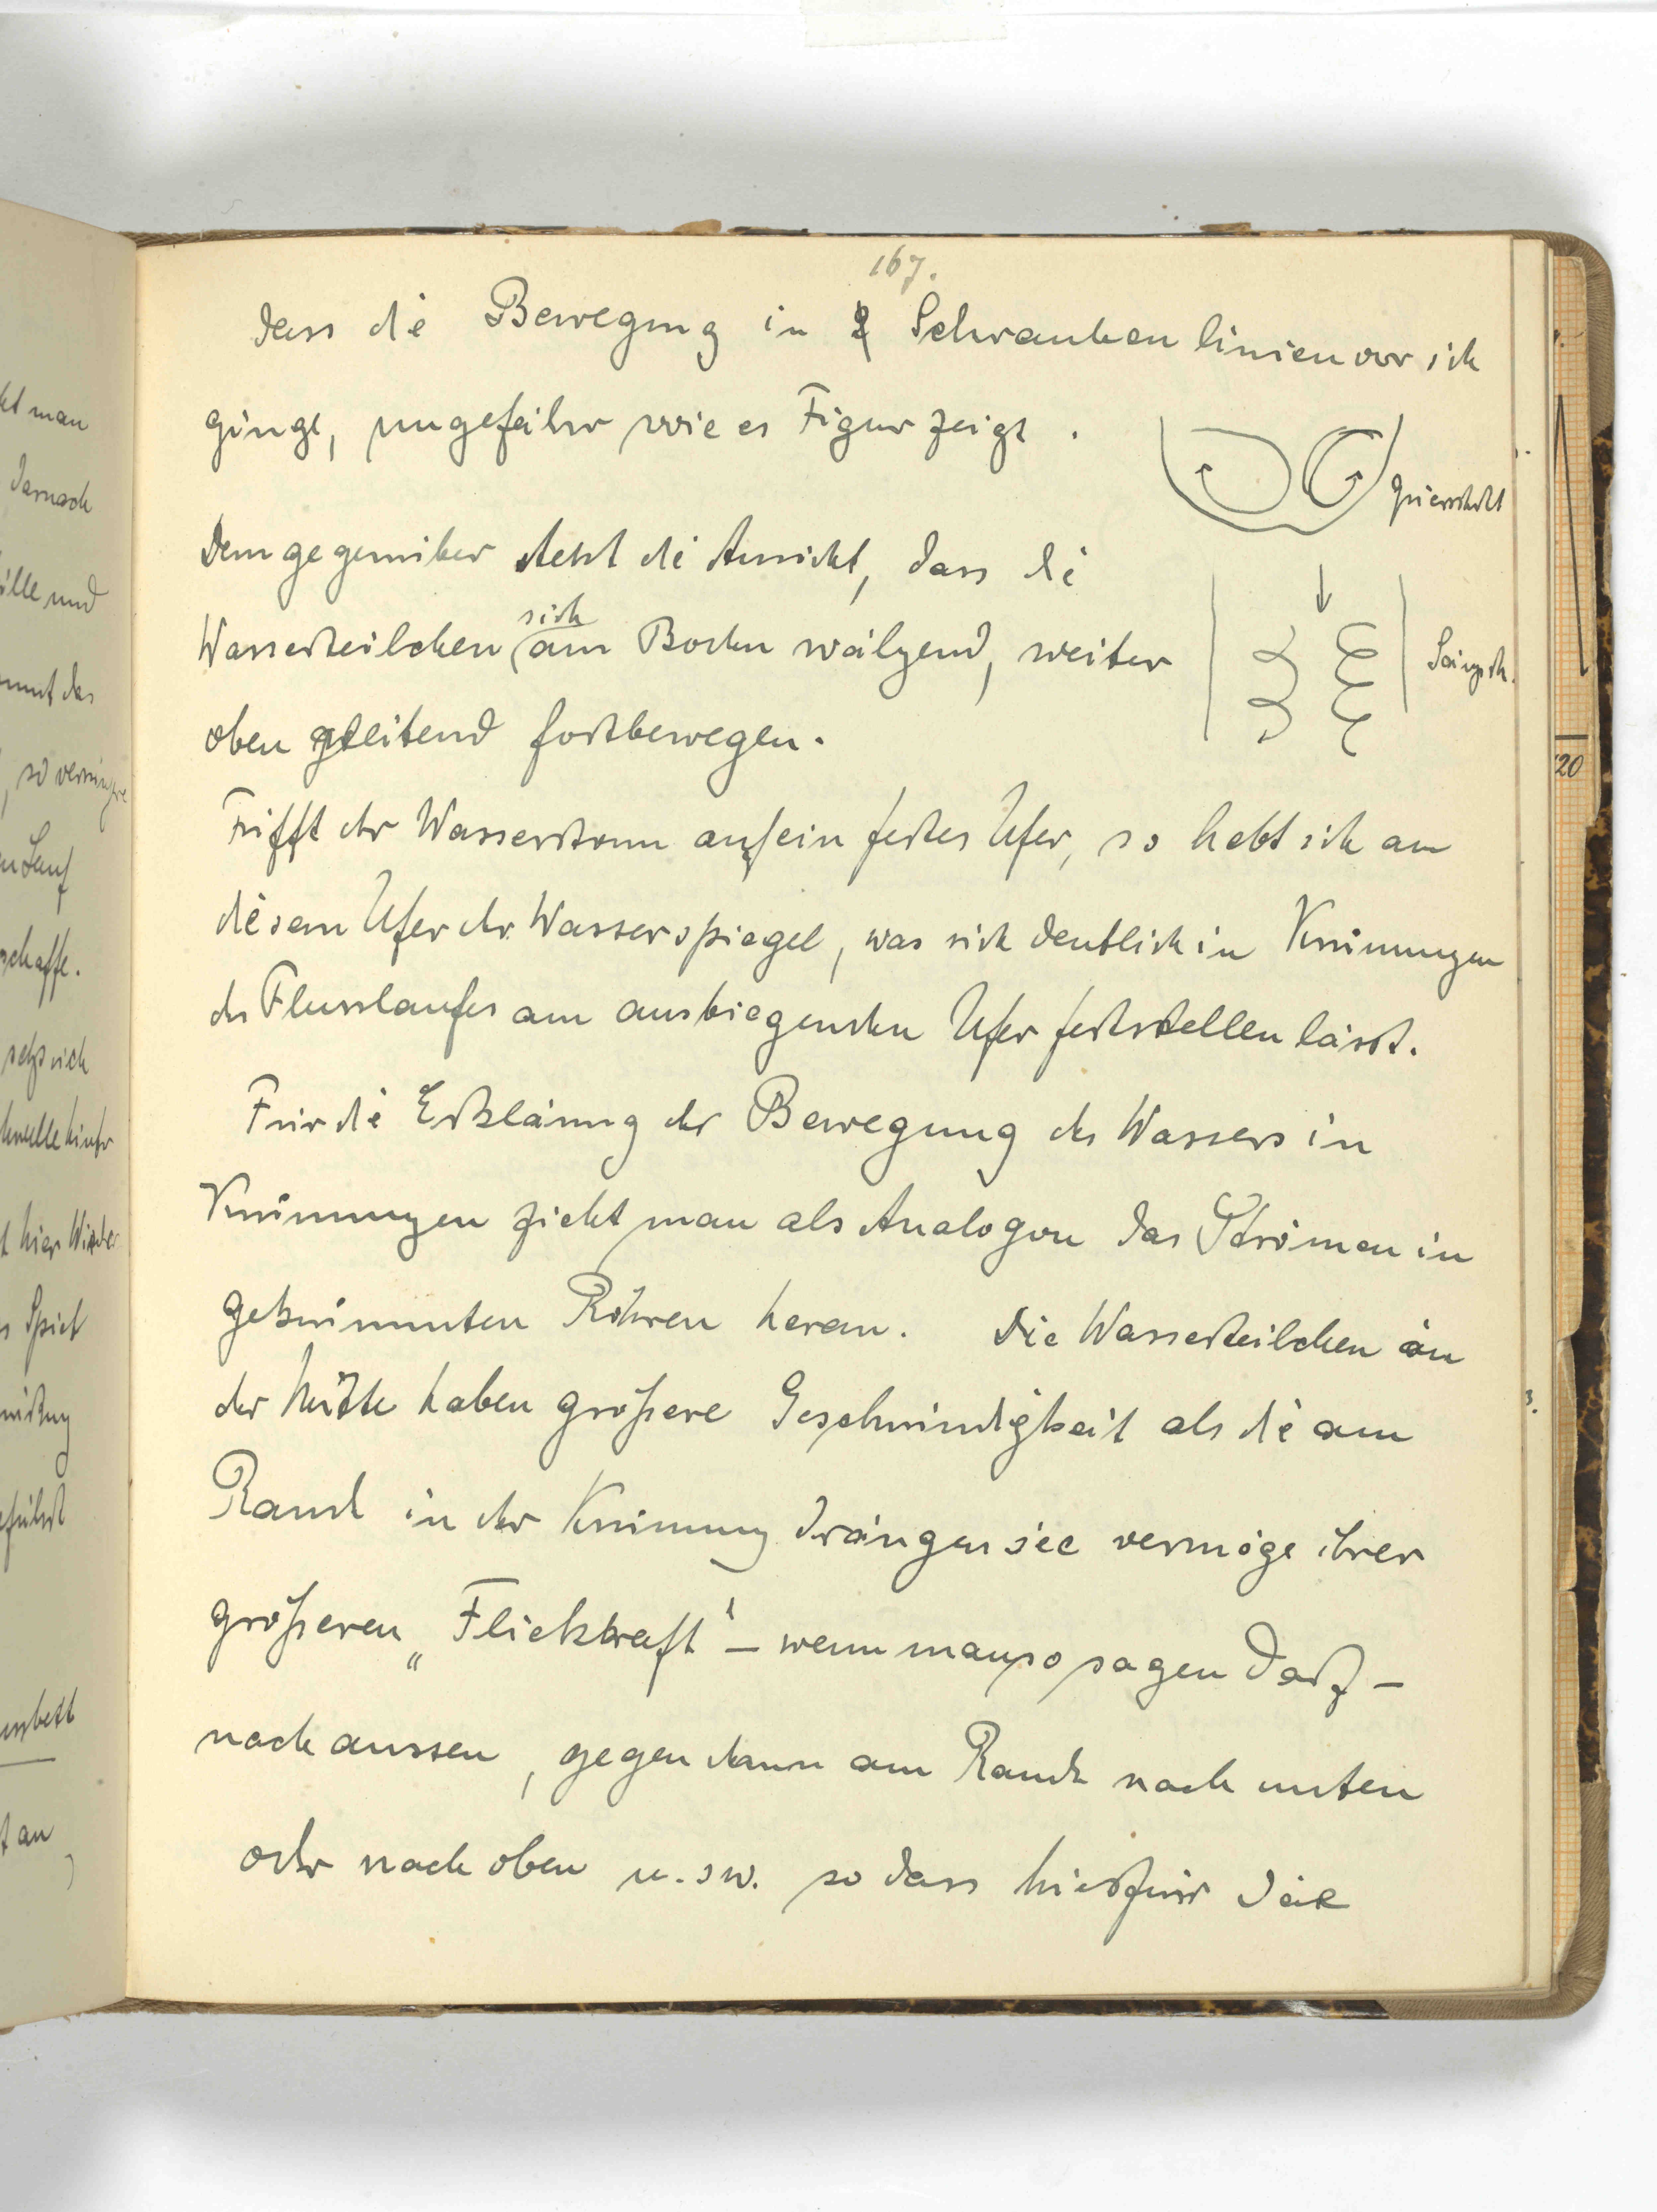 167.
dass die Bewegung in 2 Schraubenlinien vor sich
ginge, ungefähr wie es Figur zeigt.
Querschnitt
Demgegenüber steht die Ansicht, dass die
Wasserteilchen sich am Boden wälzend, weiter
Längssch.
oben gleitend fortbewegen.
Trifft der Wasserstrom auf ein festes Ufer, so hebt sich an
diesem Ufer der Wasserspiegel, was sich deutlich in Krümmungen
des Flusslaufes am ausbiegenden Ufer feststellen lässt.
Für die Erklärung der Bewegung des Wassers in
Krümmungen zieht man als Analogon das Strömen in
gekrümmten Röhren heran. Die Wasserteilchen in
der Mitte haben größere Geschwindigkeit als die am
Rande in der Krümmung drängen sie vermöge ihrer
größeren „Fliehkraft“ – wenn man so sagen darf –
nach aussen, gegen dann am Rande nach unten
oder nach oben u.sw. so dass hierfür die
20
ht man
darnach
ille und
mmt das
, so verringere
n Lauf
schaffe.
setzt sich
t hier Wieder
s Spiel
führt
ssbett
t an